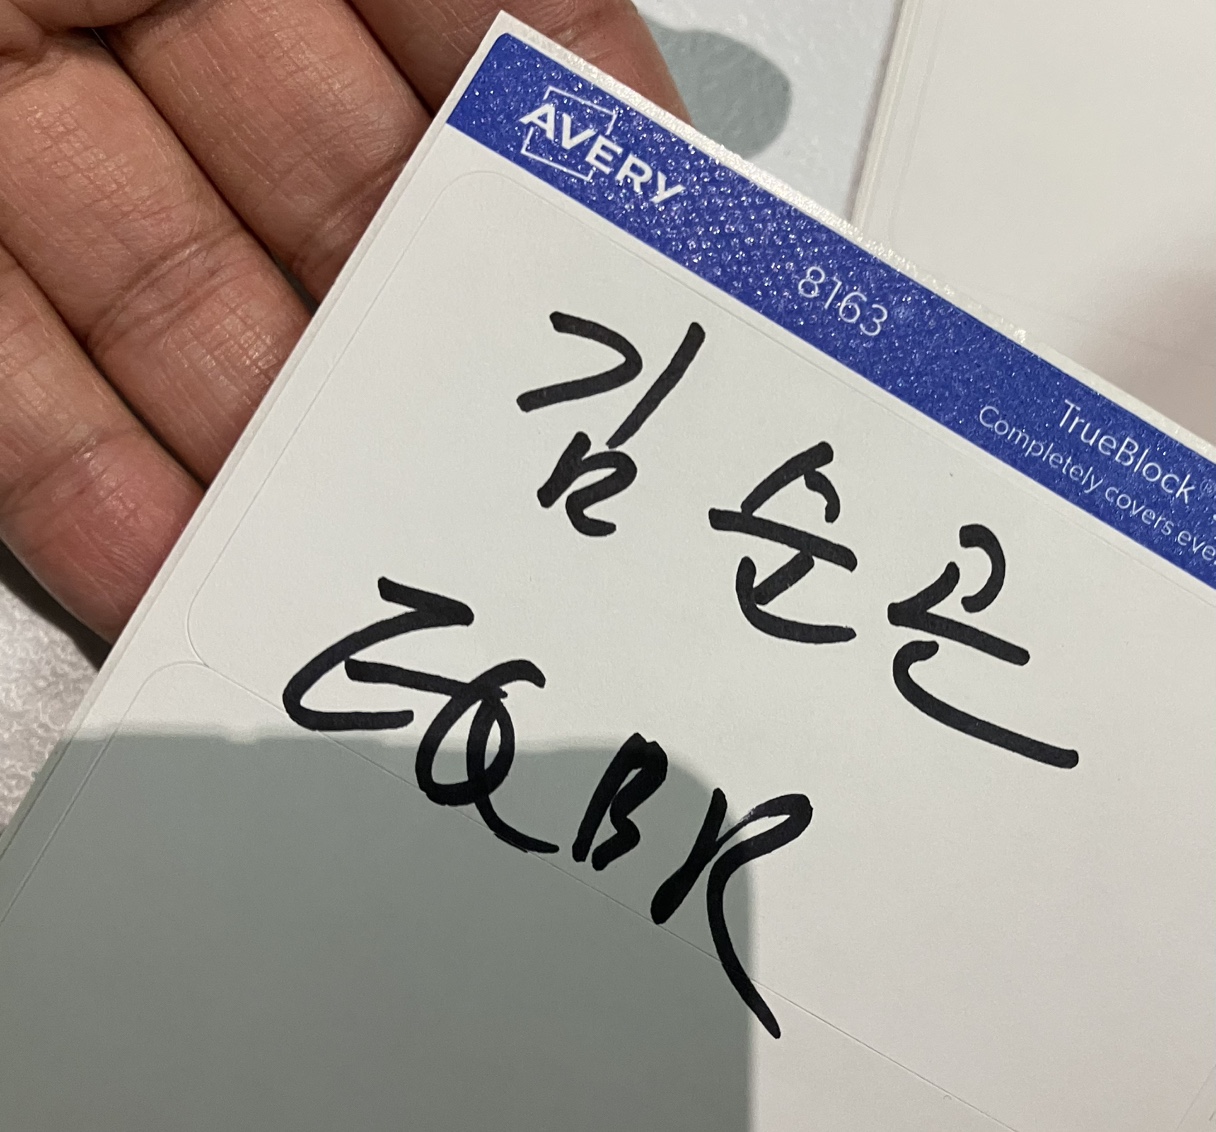 AVERY
8163
TrueBlock®
Completely covers eve
김순근
EQBR